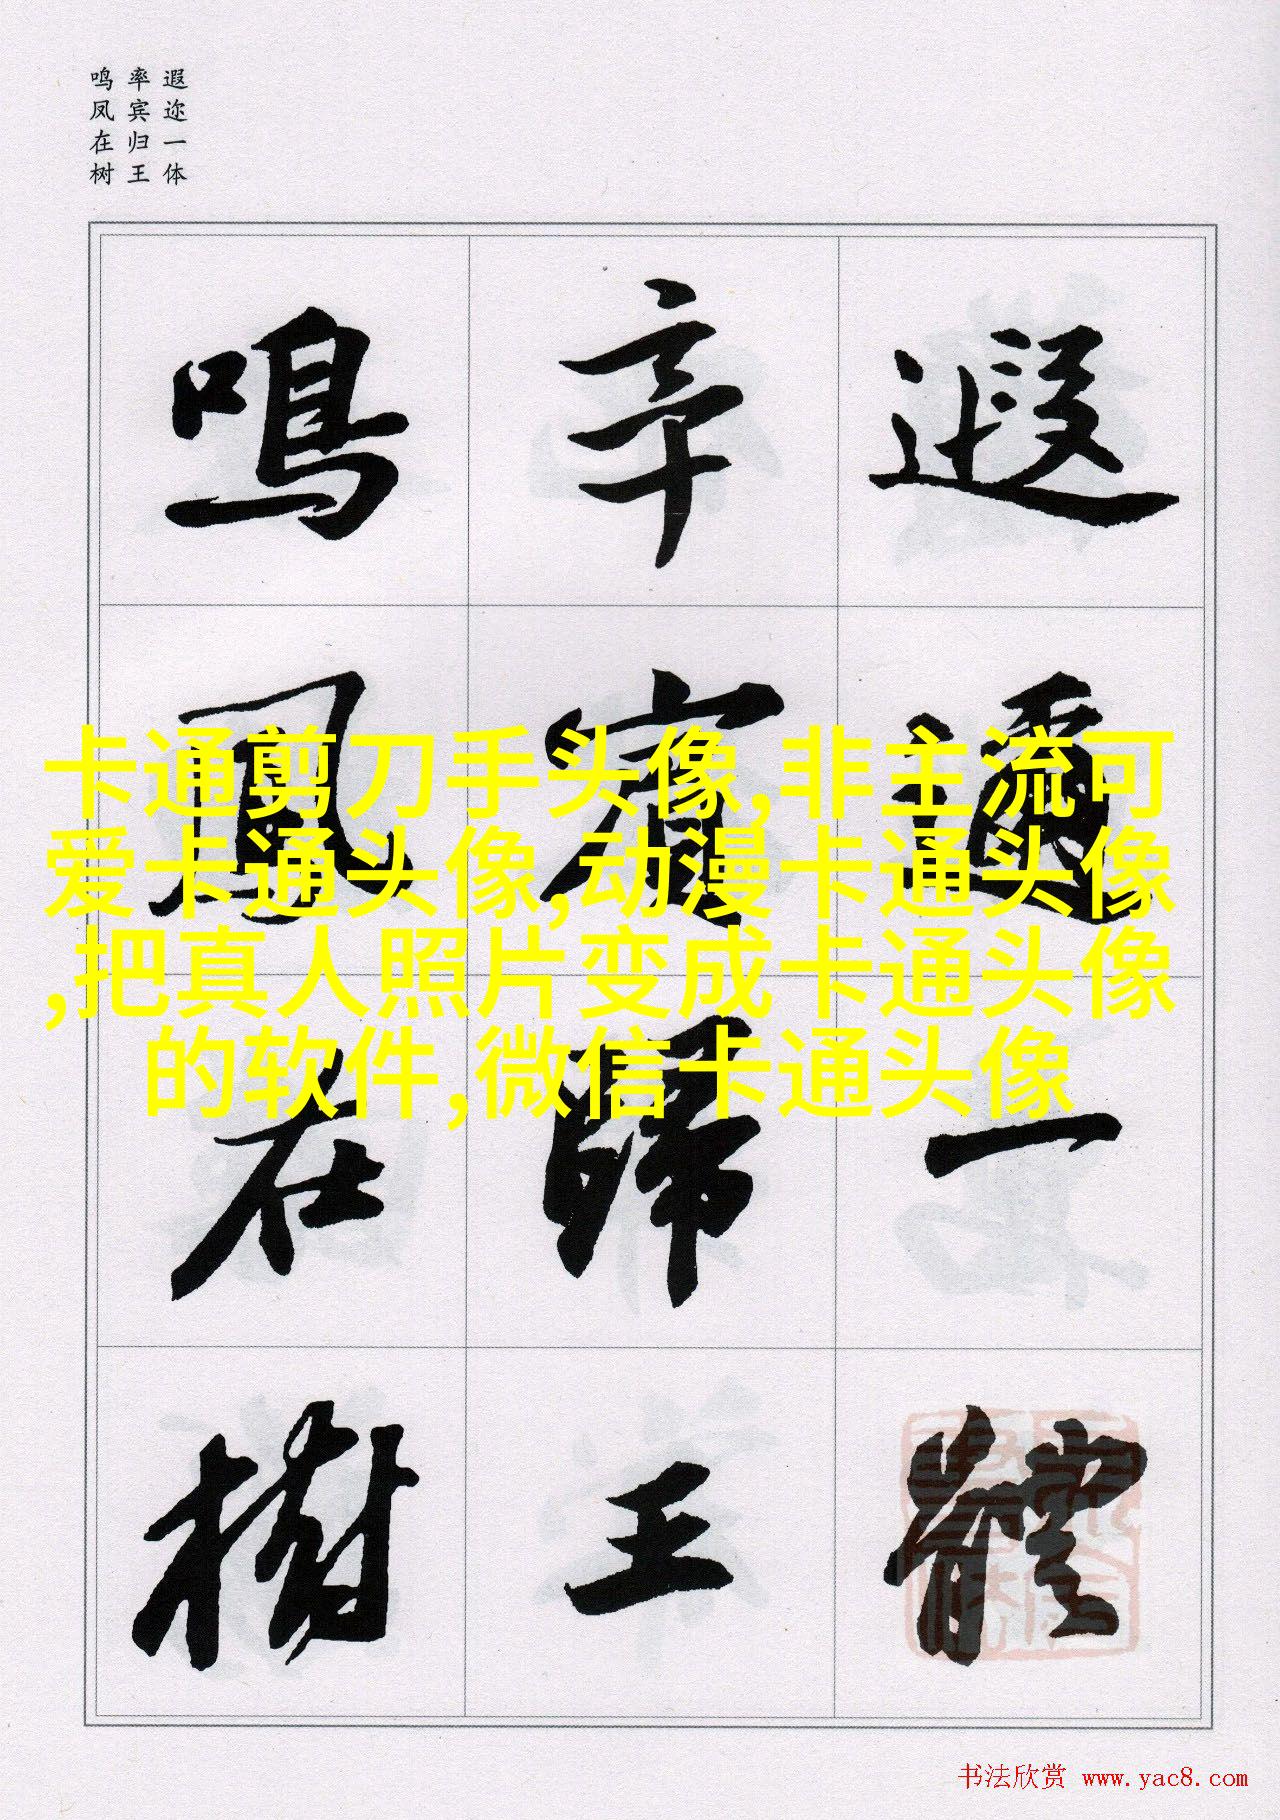 遐迩一体
率宾归王
鸣凤在树
遐邇一體
率賓歸王
鳴鳳在樹
卡通剪刀手头像,非主流可
爱卡通头像,动漫卡通头像
,把真人照片变成卡通头像
的软件,微信卡通头像
书法欣赏 www.yac8.com